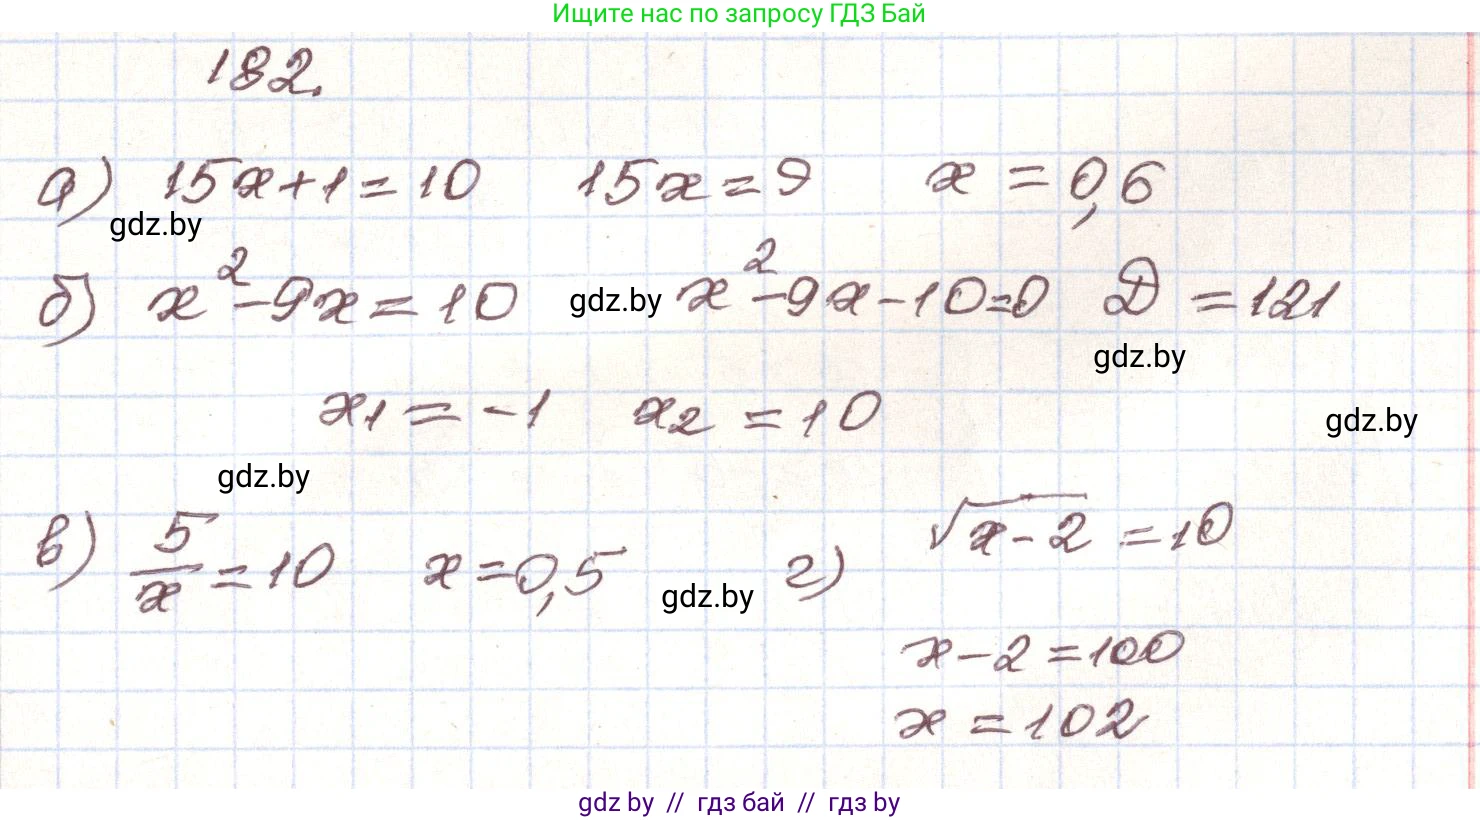 Ищите нас по запросу ГДЗ Бай
182.
а) 15x+1=10 15x=9 x=0,6
gdz.by
б) x²-9x=10 gdz.by x²-9x-10=0 D=121
gdz.by
x₁=-1 x₂=10
gdz.by
gdz.by
в) 5/x=10 x=0,5 gdz.by г) √x-2=10
x-2=100
x=102
gdz by // гдз бай // гдз by